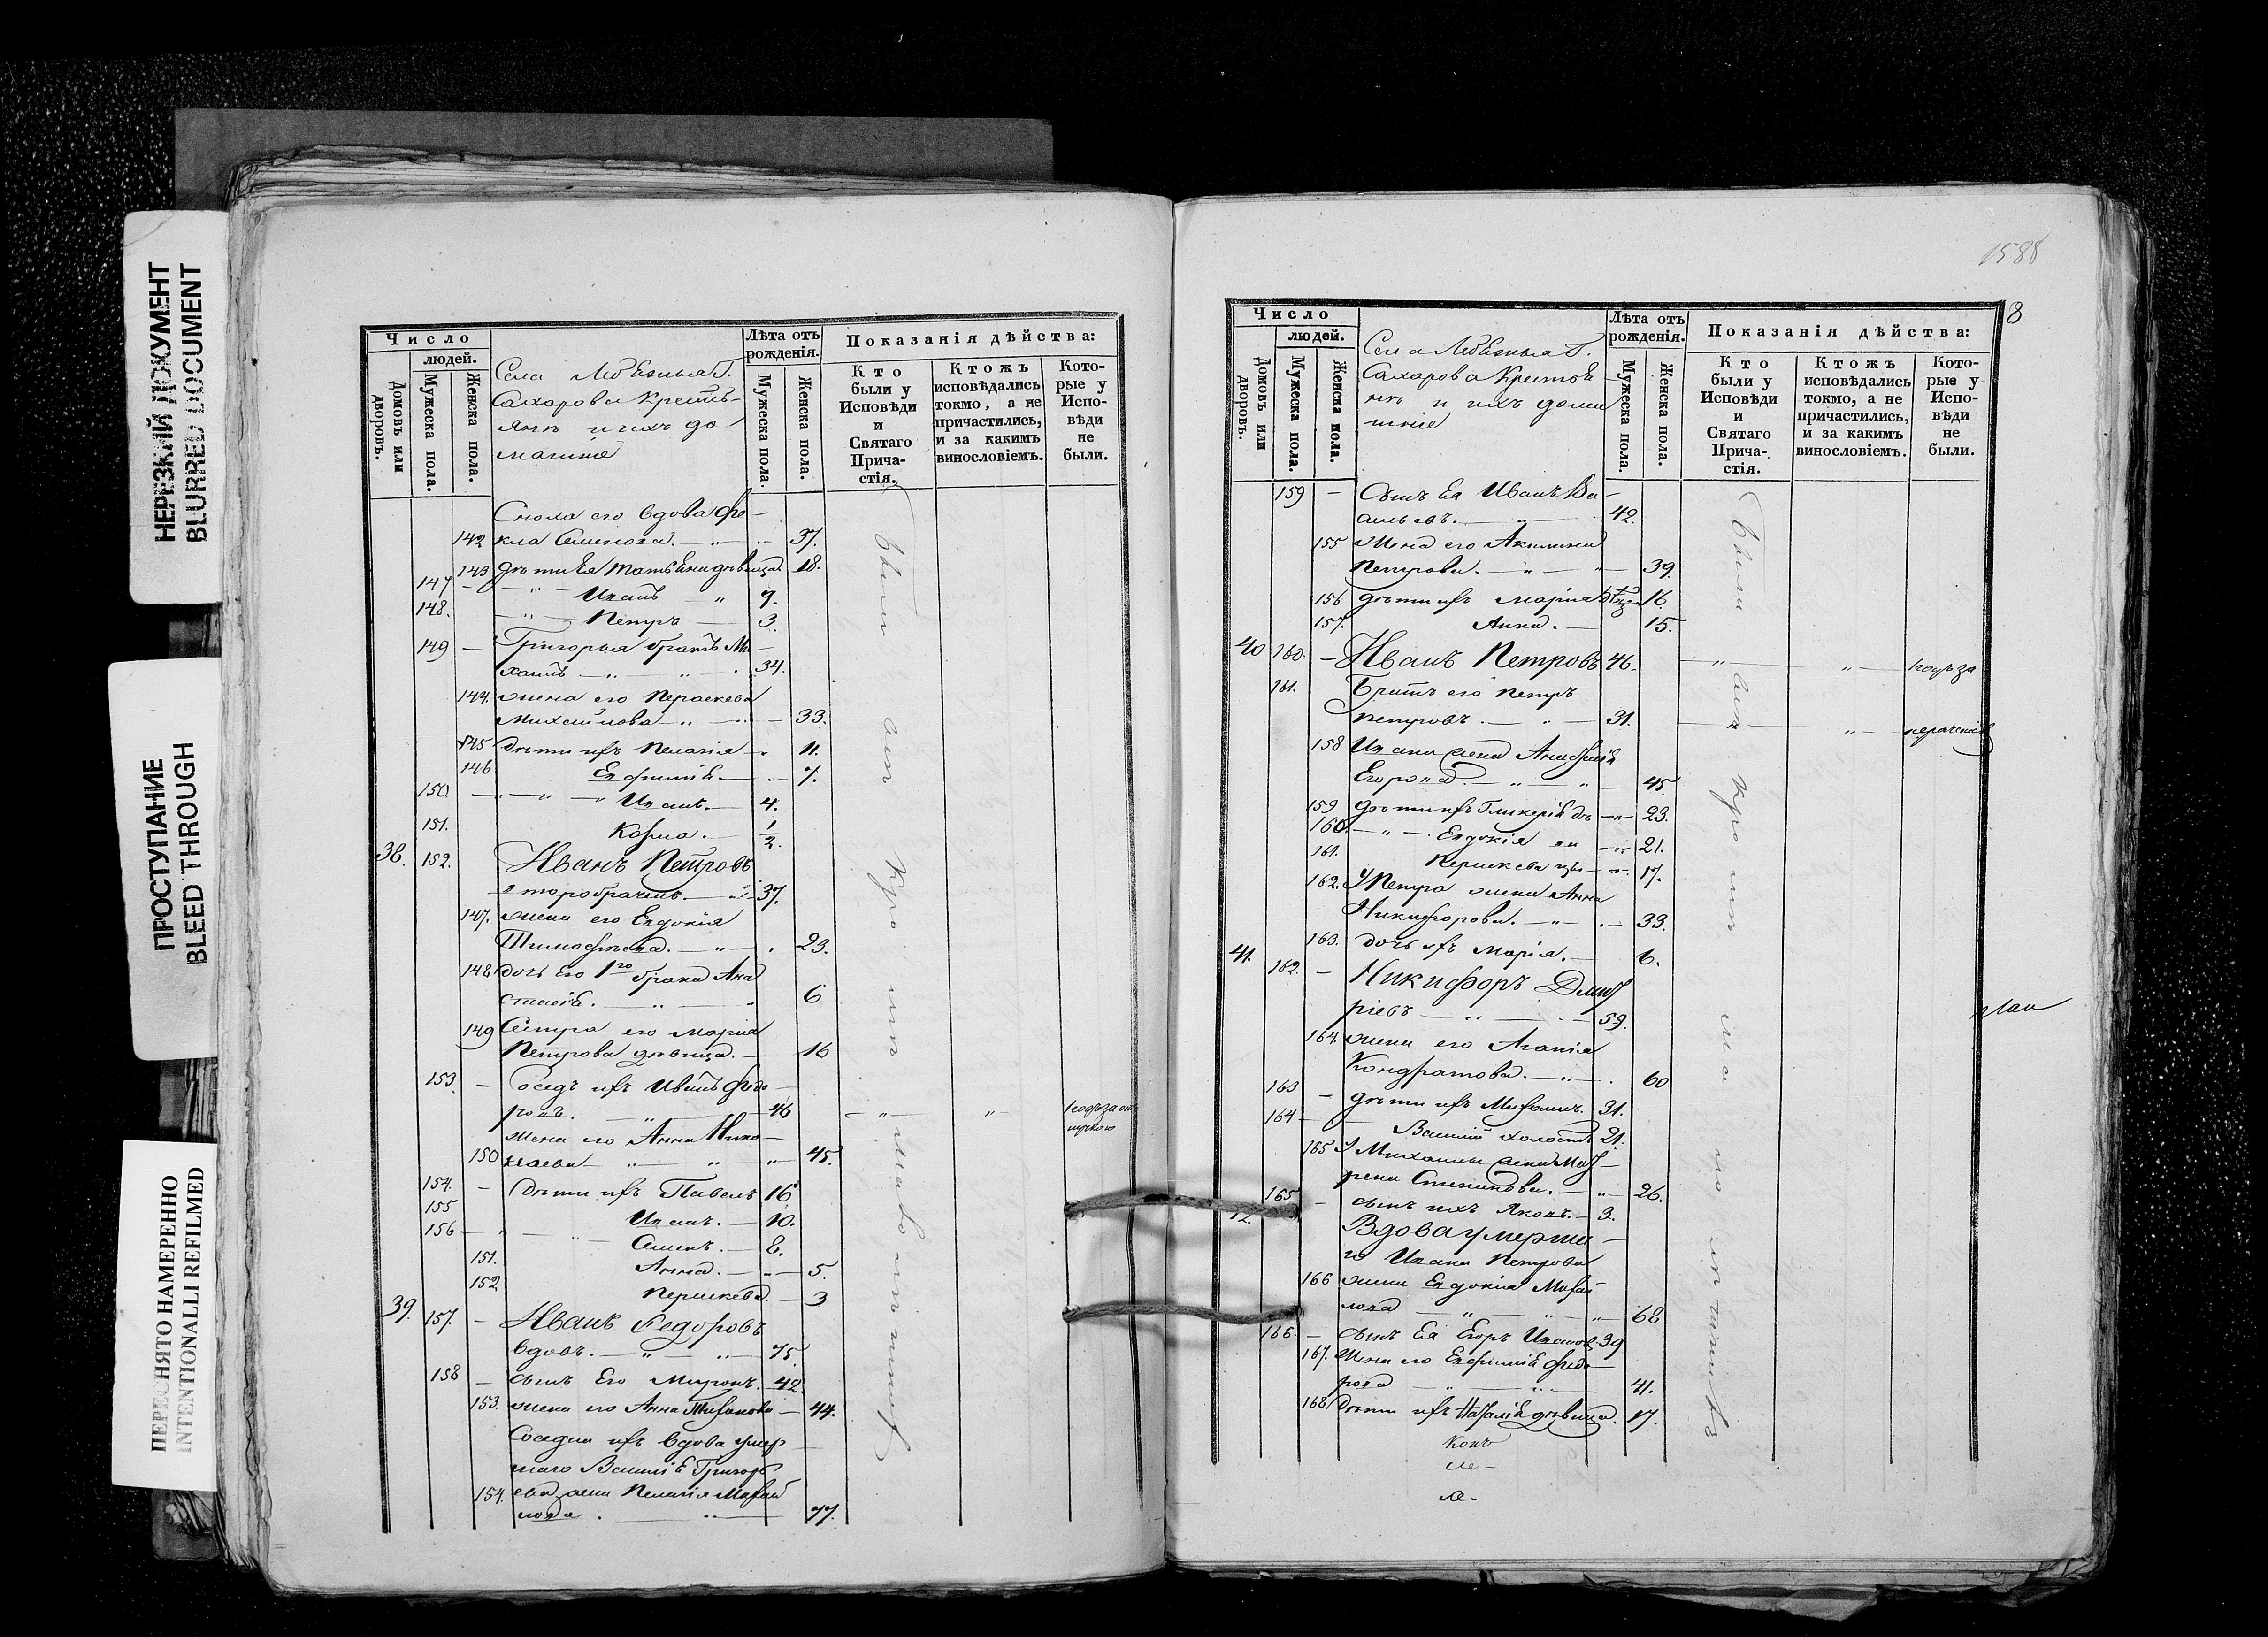 НЕРЕЗКИЙ ДОКУМЕНТ
BLURRED DOCUMENT
ПРОСТУПАНИЕ
BLEED THROUGH
ПЕРЕСНЯТО НАМЕРЕННО
INTENTIONALLI REFILMED
Число
людей.
Домовъ или дворовъ.
Мужеска пола.
Женска пола.
Села
Сахарова Крестьянъ и ихъ домашніе
Лѣта отъ рожденія.
Мужеска пола.
Женска пола.
Показанія дѣйства:
Кто были у Исповѣди и Святаго Причастія.
Ктожъ исповѣдались токмо, а не причастились, и за какимъ винословіемъ.
Которые у Исповѣди не были.
его вдова Фе-
142 кла Семенова 37.
143 дѣти Ея девица 18.
147 Иванъ 7.
148. Петръ 3.
149 Григорья братъ Ми-
хаилъ 34.
144. жена его Параскева
Михайлова 33.
145 дѣти ихъ Пелагія 11.
146. Евфимія 7.
150. Иванъ. 4.
151. Козма. 1/2.
38. 152. Иванъ Петровъ
второбрачный 37.
147. жена его Евдокія
Тимофеева. 23.
148 дочь Его 1го брака Ана
стасія. 6
149 Сестра его Марія
Петрова девица. 16
153. Соседъ ихъ Иванъ Федо-
ровъ. 46
жена его Анна Нико-
150 лаева 45.
154. дѣти ихъ Павелъ 16
155 Иванъ. 10.
156 Семенъ. 8.
151. Анна. 5.
152 Параскева. 3
39. 157. Иванъ Федоровъ
вдовъ. 75.
158 сынъ Его Миронъ. 42.
153. жена его Анна 44.
Соседка ихъ вдова умер-
шаго Григорь
154. ева жена Пелагія Михай
лова. 77.
1588
8
Число
людей.
Домовъ или дворовъ.
Мужеска пола.
Женска пола.
Села
Сахарова Крестья
нъ и ихъ дома
шніе
Лѣта отъ рожденія.
Мужеска пола.
Женска пола.
Показанія дѣйства:
Кто были у Исповѣди и Святаго Причастія.
Ктожъ исповѣдались токмо, а не причастились, и за какимъ винословіемъ.
Которые у Исповѣди не были.
159 сынъ Ея Иванъ Ва-
сильевъ. 42.
155 жена его Акилина
Петрова. 39.
156 дѣти ихъ Марія 16.
157. Анна. 15.
40 160. Иванъ Петровъ 46.
161. Братъ его Петръ
Петровъ. 31.
158 Ивана жена
Егорова. 45.
159 дѣти ихъ Гликерія 23.
160. Евдокія 21.
161. Параскева 17.
162. У Петра жена Анна
Никифорова. 33.
163. дочь ихъ Марія. 6.
41. 162. Никифоръ Дмит
ріевъ 59.
164 жена его Агапія
Кондратова. 60
163 дѣти ихъ 31.
164 Василій холостъ 21.
165 У Михаилы жена Мат-
рена Степанова. 26.
165 сынъ ихъ Яковъ. 3.
42. Вдова умерша-
го Ивана Петрова
166 жена Евдокія Михай
лова 68
166. сынъ Ея Егоръ Ивановъ 39
167. жена его Евфимія Федо-
рова 41.
168 дѣти ихъ Наталія девица. 17.